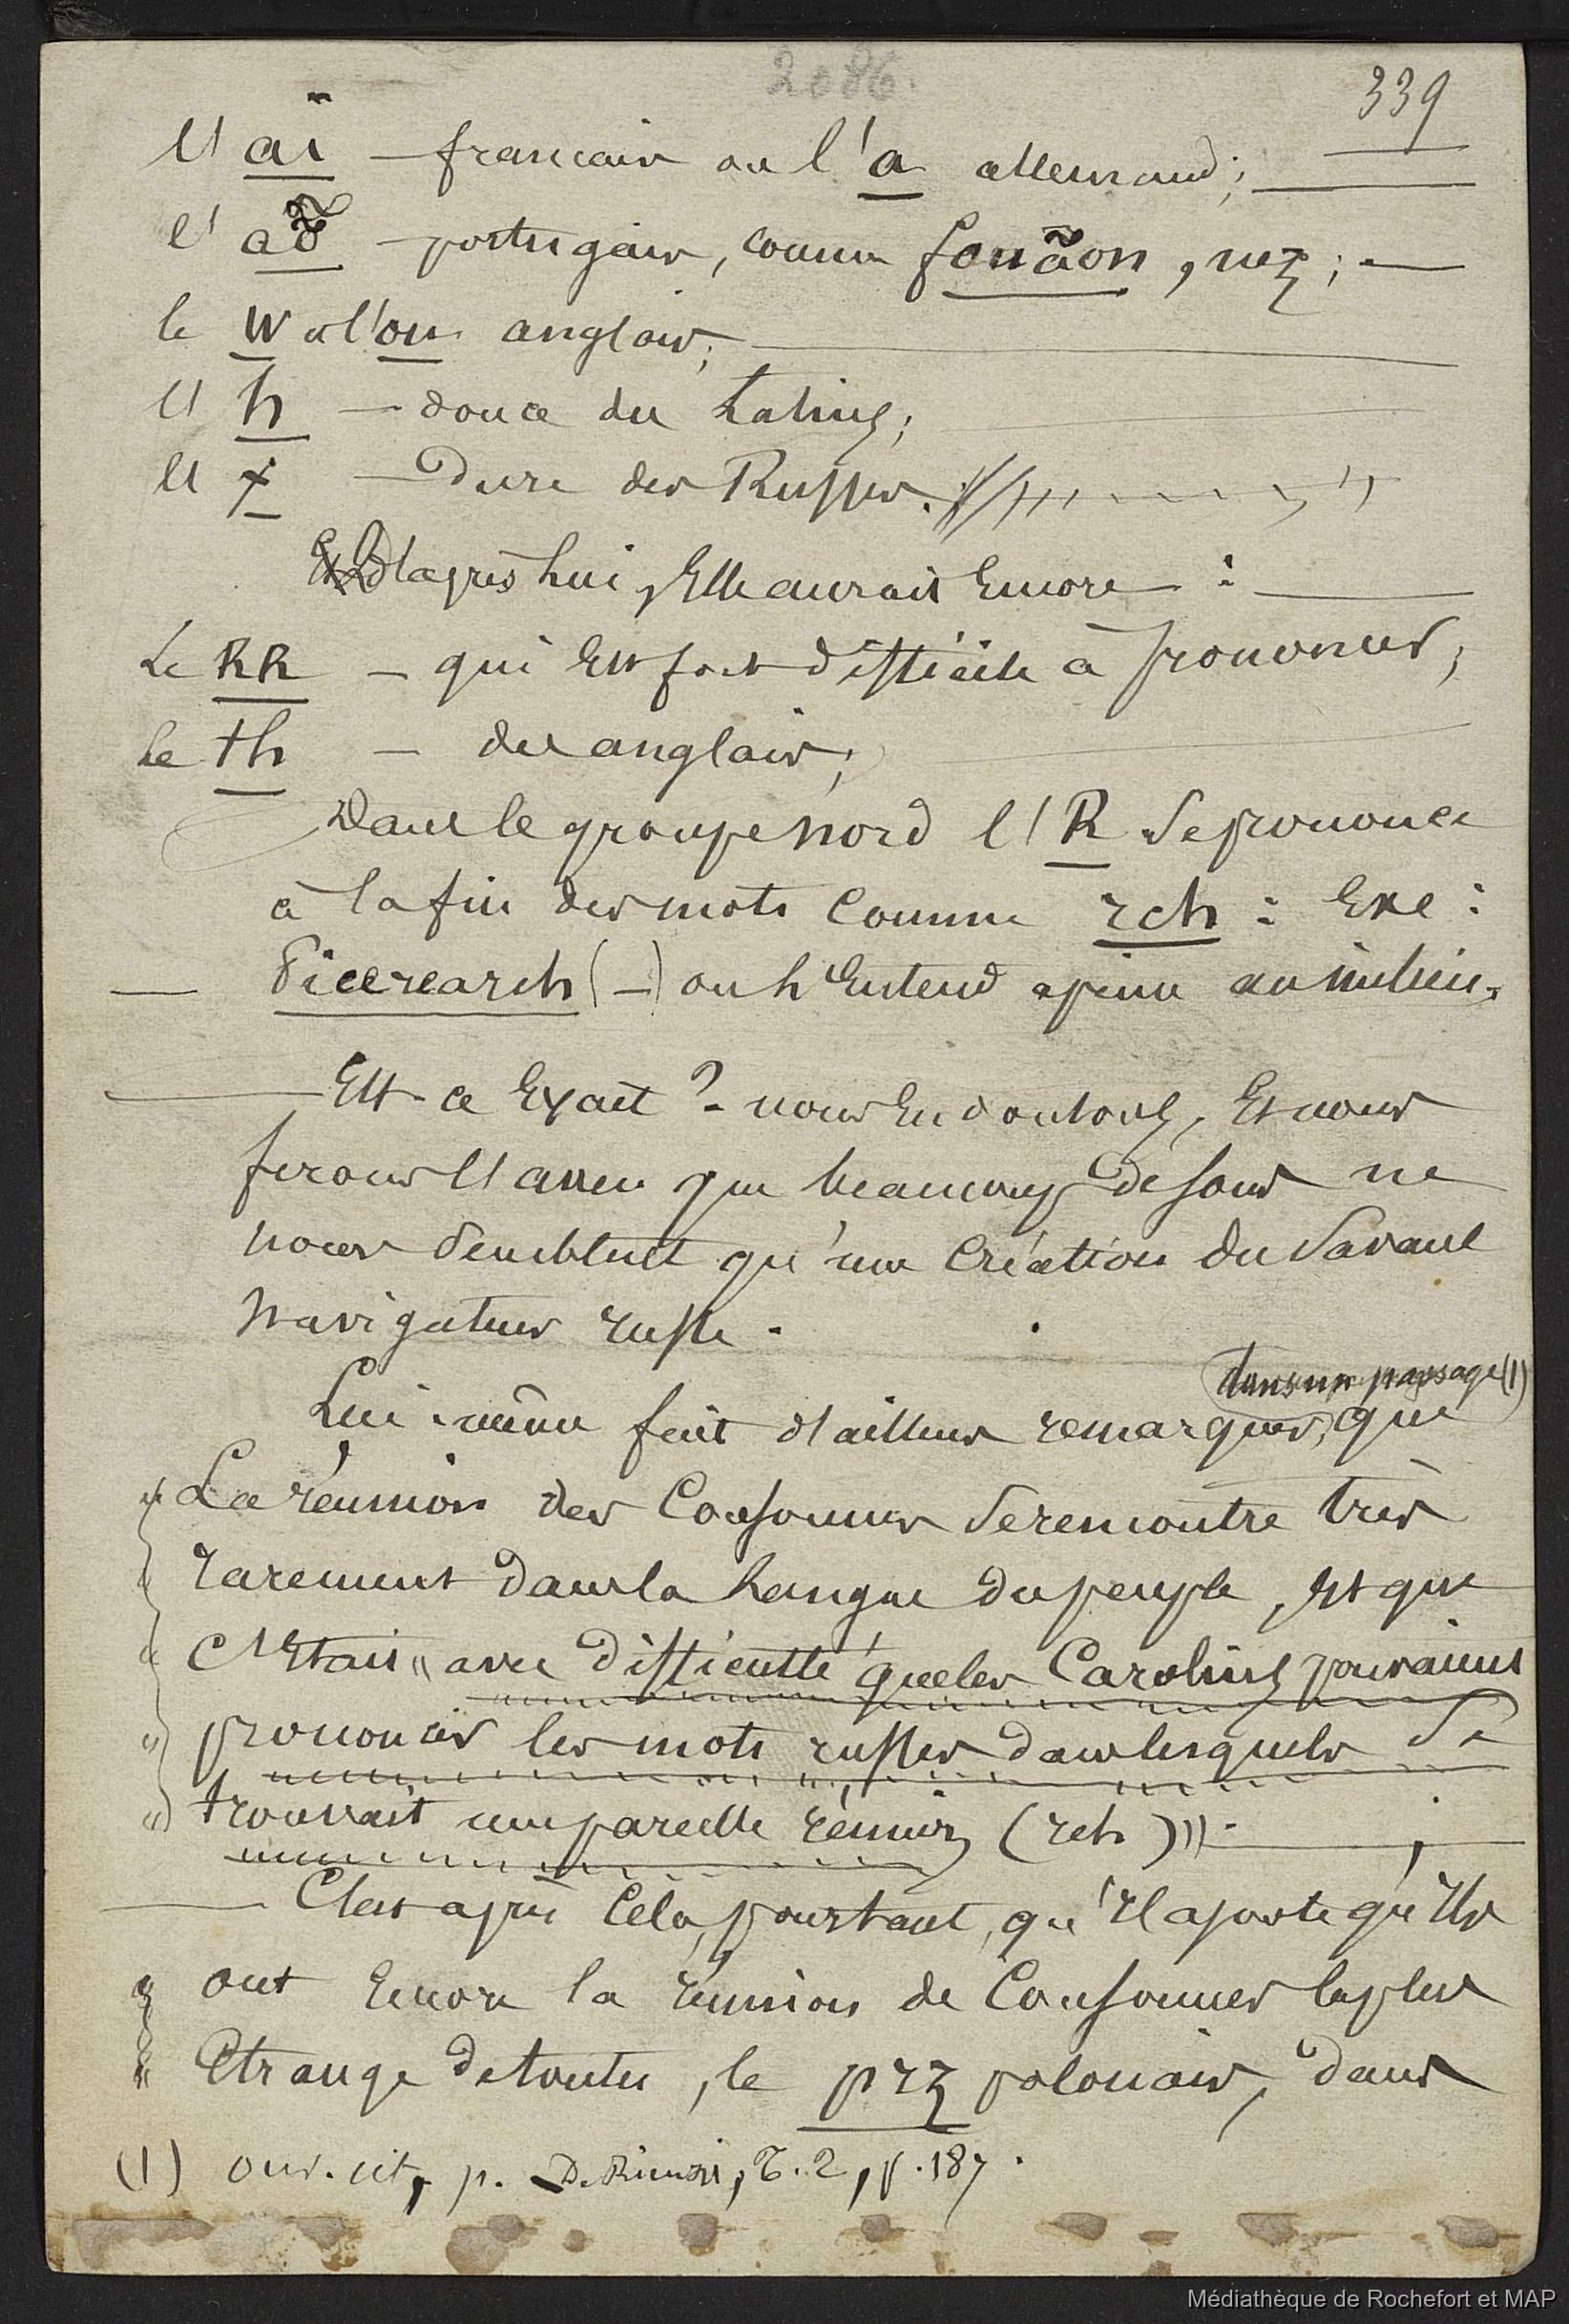 2086.
339
l'aï — français ou l'a allemand;
l'aõ — portugais, comme fonãon, nez;
le W et l'ou anglais;
l'h — douce du Latins;
l'x — Dure des Russes.
D'après Lui, Elle aurait Encore :
Le RR — qui Est fort difficile à prononcer;
Le th — des anglais;
Dans le groupe nord l'R Se prononce
à la fin des mots Comme rch : Exe :
— Picerearch (—) on l'Entend à peine au milieu.
— Est-ce Exact ? - nous En doutons, Et nous
ferons l'aveu que beaucoup de sons ne
nous Semblent qu'une Création du Savant
Navigateur russe.
dans un passage (1)
Lui-même fait d'ailleurs remarquer, que
La réunion des Consonnes Se rencontre très
rarement dans la Langue du peuple, Et que
C'Etait "avec difficulté que les Carolins pouvaient
prononcer les mots russes dans lesquels Se
trouvait une pareille réunion (rch)".
— C'est après Cela, pourtant, qu'Il ajoute qu'Ils
ont Encore la réunion de Consonnes la plus
Etrange de toutes, le prz polonais, dans
(1) Ouv. cit, p. D. Rienzi, T. 2, p. 187.
Médiathèque de Rochefort et MAP